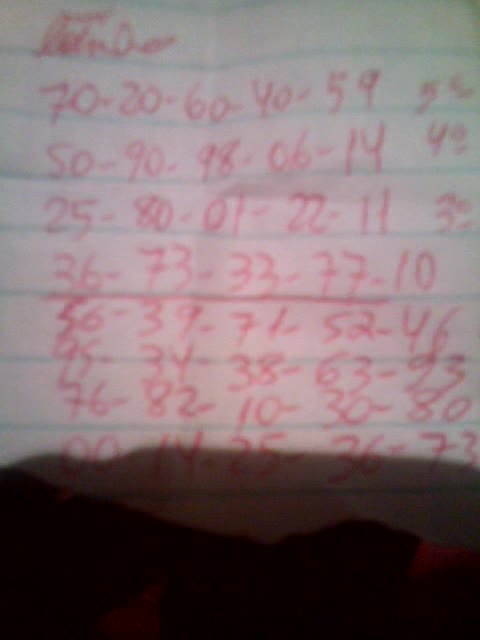 70-20-60-40-59 5º
50-90-98-06-14 4º
25-80-01-22-11 3º
36-73-33-77-10
56-39-71-52-46
95-34-38-63-93
76-82-10-30-80
00-14-25-36-73